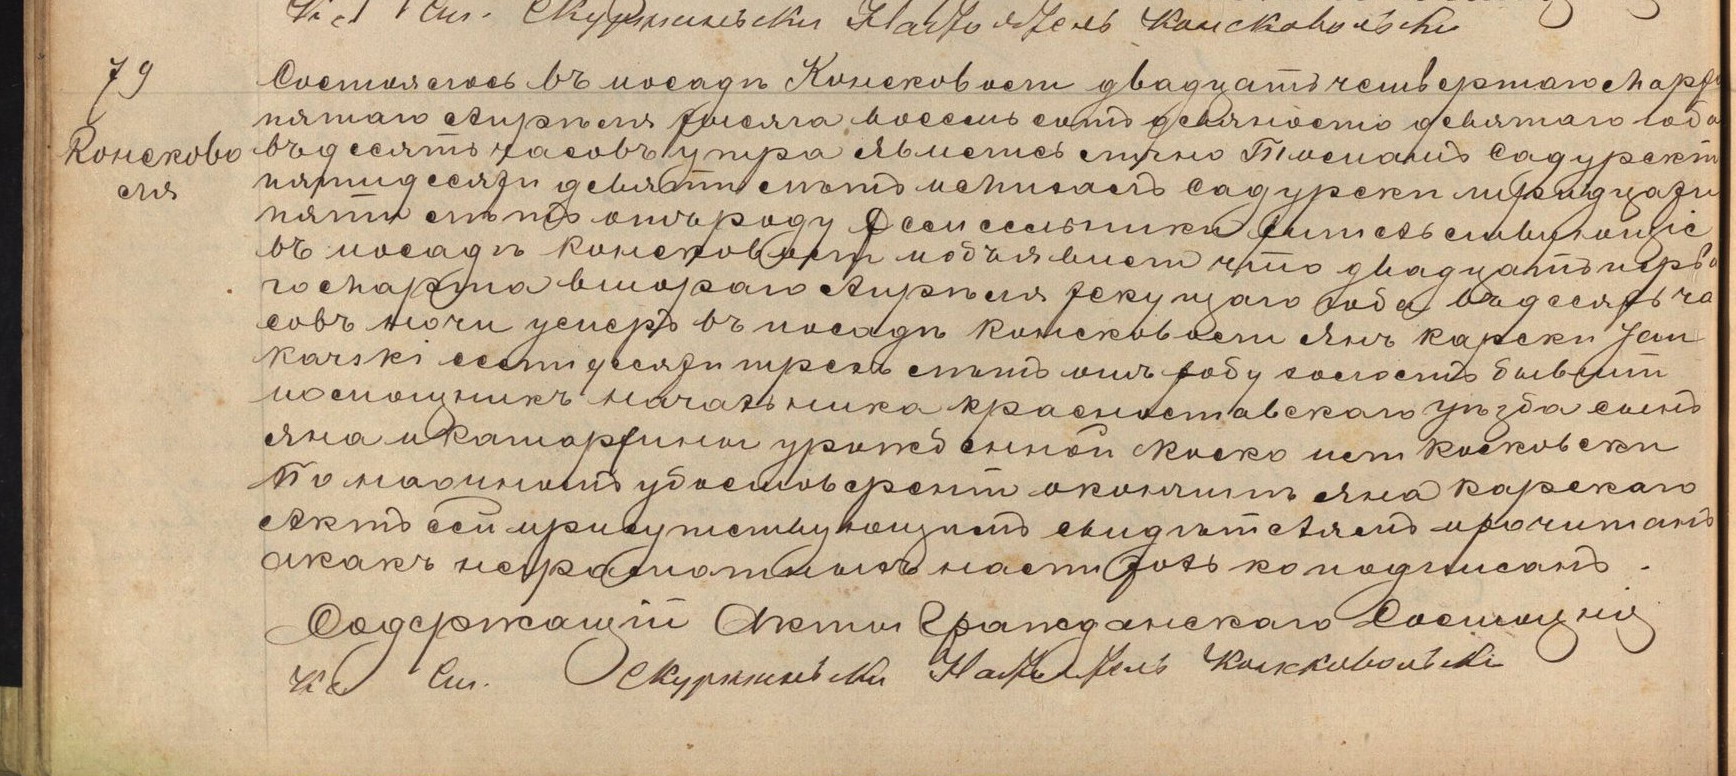 Кс Ст. Скуржиньски Настоятель Консковольски
79
Консково
ля
Состоялось въ посадѣ Консковоли двадцать четвертаго Марта
пятаго Апрѣля тысяча восемь сотъ девяносто девятаго года
въ десять часовъ утра явились лично Томашъ Садурски
пятидесяти девяти лѣтъ и Михаилъ Садурски тридцати
пяти лѣтъ отъ роду жительствующіе
въ посадѣ Консковоли и объявили что двадцать перва
го Марта втораго Апрѣля текущаго года въ десять ча
совъ ночи умеръ въ посадѣ Консковоли Янъ Карски Jan
Karski лѣтъ отъ роду холостъ бывшій
помощникъ начальника Красноставскаго уѣзда сынъ
Яна и Катаржины урожденной Коско или Косковски
По наочномъ удостовѣреніи о кончинѣ Яна Карскаго
Актъ сей присутствующимъ свидѣтелямъ прочитанъ
а какъ неграмотнымъ нами только подписанъ.
Содержащій Акты Гражданскаго Состоянія
Кс Ст. Скуржиньски Настоятель Консковольски